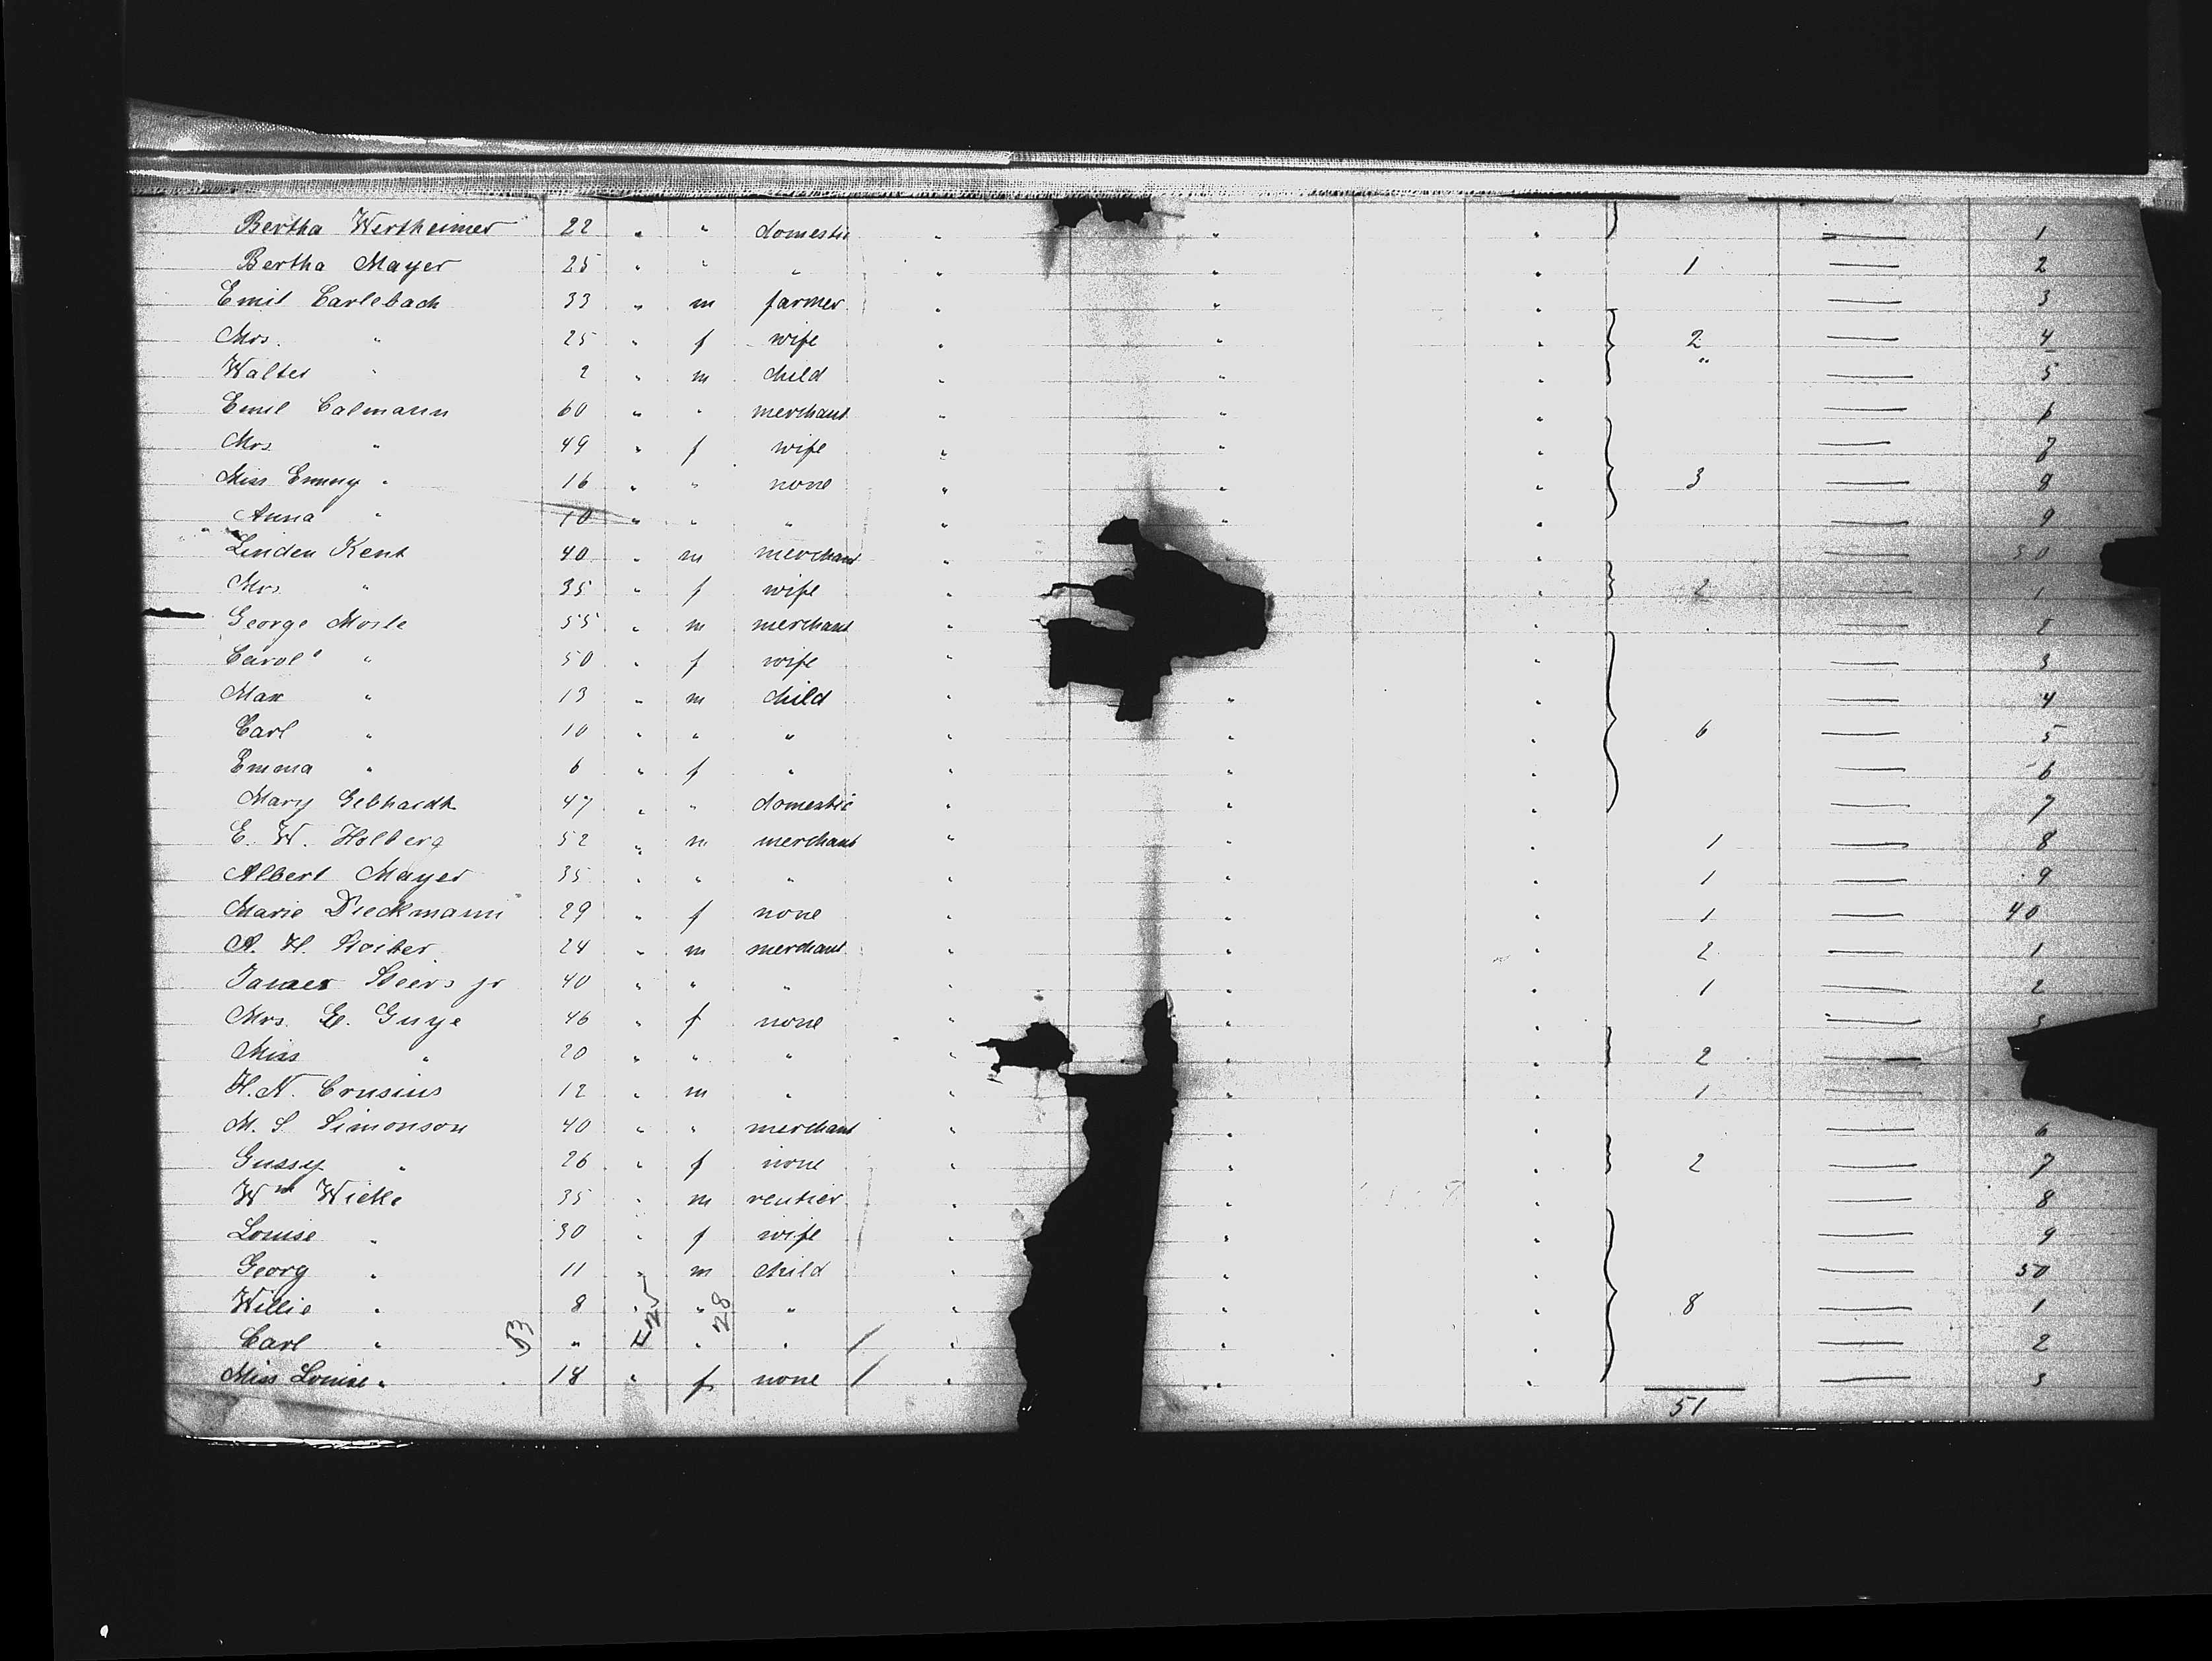 Bertha Wertheimer 22 " " domestic " " " 1
Bertha Mayer 25 " " " " " " 1 — 2
Emil Carlebach 33 " m farmer " " " — 3
Mrs. " 25 " f wife " " " 2 — 4
Walter " 2 " m child " " " " — 5
Emil Calmann 60 " " merchant " " " — 6
Mrs " 49 " f wife " " " — 7
Miss Emmy " 16 " " none " " " 3 — 8
Anna " 10 " " " " " " — 9
Linden Kent 40 " m merchant " " — 30
Mrs " 35 " f wife " " 2 — 1
George Mosle 55 " m merchant " " — 2
Carol' " 50 " f wife " " — 3
Max " 13 " m child " " " — 4
Carl " 10 " " " " " " 6 — 5
Emma " 6 " f " " " " — 6
Mary Gebhardt 47 " " domestic " " " — 7
E. W. Holberg 52 " m merchant " " " 1 — 8
Albert Mayer 35 " " " " " " 1 — 9
Marie Dieckmann 29 " f none " " " 1 — 40
A. H. 24 " m merchant " " " 2 — 1
James jr 40 " " " " " " 1 — 2
Mrs. E. Guye 46 " f none " " " — 3
Miss " 20 " " " " " " 2 —
H. N. Crusius 12 " m " " " " 1 —
M. S. Simonson 40 " " merchant " " " — 6
Gussy " 26 " f none " " " 2 — 7
Wm 35 " m rentier " " — 8
Louise " 30 " f wife " " — 9
Georg " 11 " m child " " " — 50
Willie " 8 " " " " " " 8 — 1
Carl " " " " " " " " — 2
Miss Louise " 18 " f none " " " — 3
53 F 25 28
51